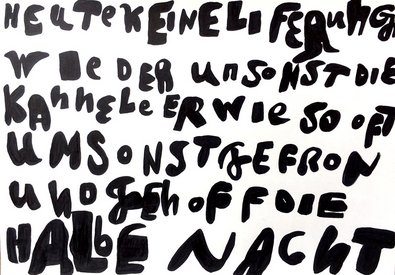 HEUTE KEINE LIFERUNG
WIEDER UNSONST DIE
KANNE LEER WIE SO OFT
UMSONST GEFRON
UND GEHOFF DIE
HALBE NACHT